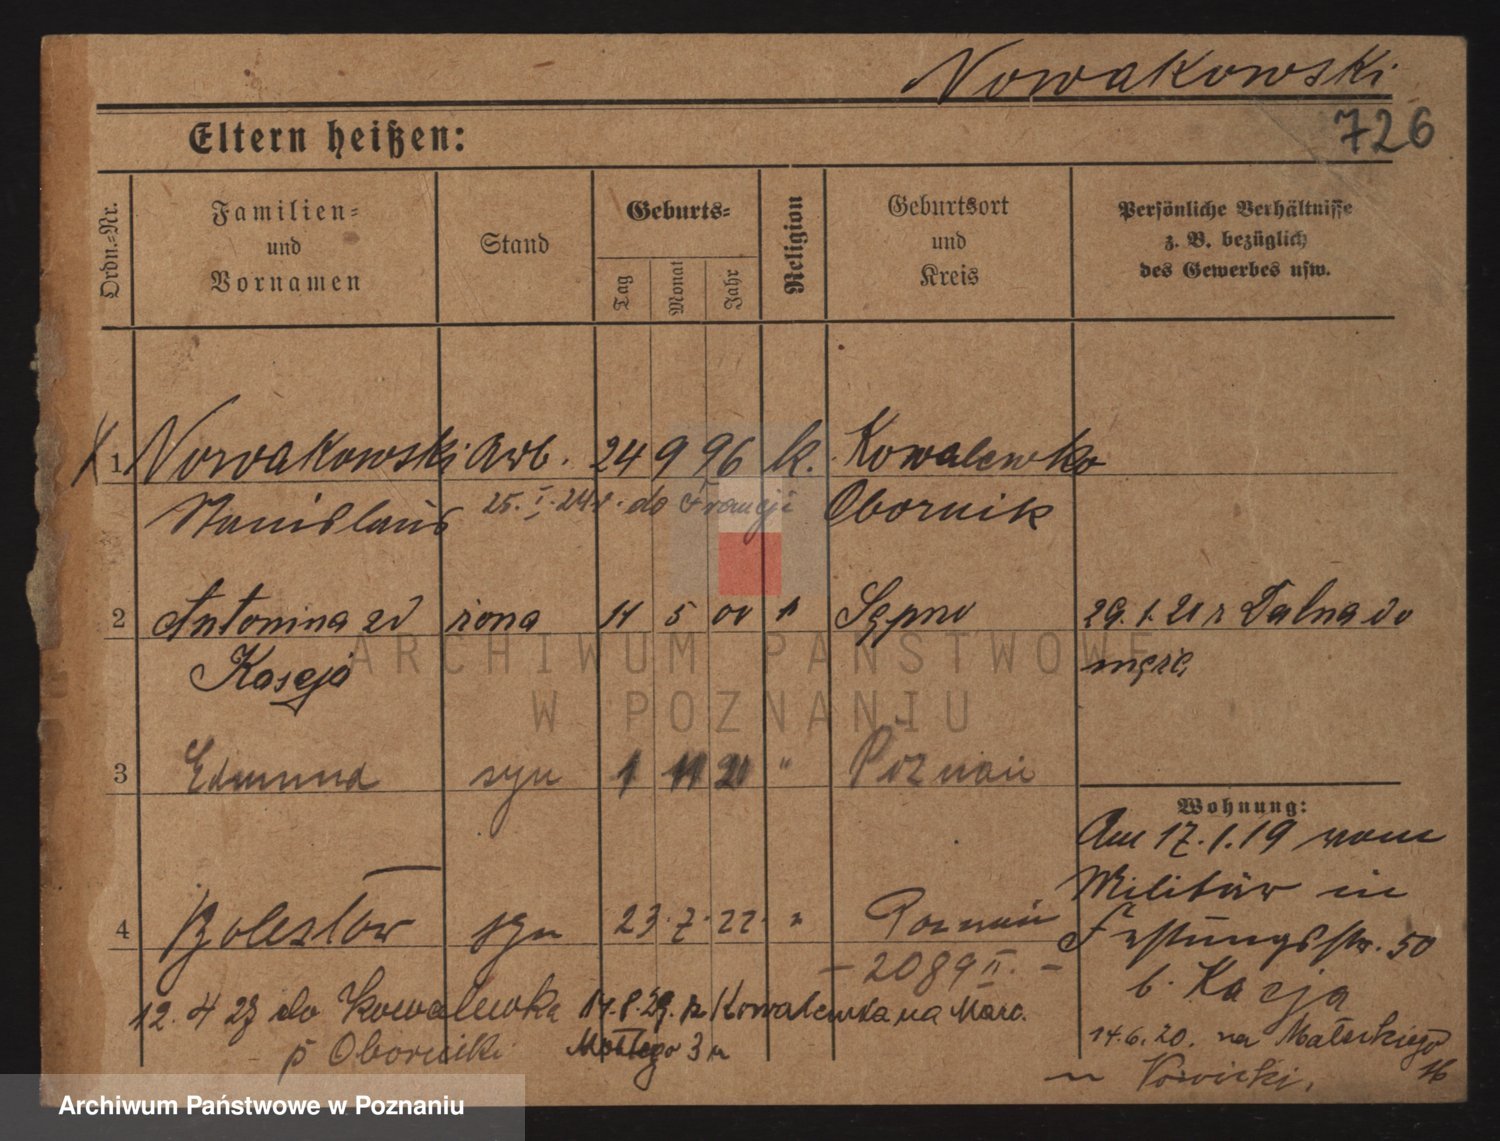 Nowakowski
726
Eltern heißen:
Ordn.=Nr.
Familien=
und
Vornamen
Stand
Geburts=
Tag
Monat
Jahr
Religion
Geburtsort
und
Kreis
Persönliche Verhältnisse
z. B. bezüglich
des Gewerbes usw.
1 Nowakowski Arb. 24 9 96 k. Kowalewko
Stanislaus 25. I. 24 r. do Francji Obornik
2 Antonina zd żona 11 5 00 Sępno 29. 1. 21 r Dalna do
Kaseja męża
ARCHIWUM PAŃSTWOWE
W POZNANIU
3 Edmund syn 1 11 21 " Poznań
Wohnung:
Am 17.1.19 vom
Militär in
4 Bolesław syn 23. 7. 22. " Poznań
Festungsstr. 50
- 2089 II. -
b. Kaseja
12. 4 23 do Kowalewka 14.8.29. z Kowalewka na Marc.
p Obornik Mottego 3
14.6.20. na Małeckiego
16
Archiwum Państwowe w Poznaniu